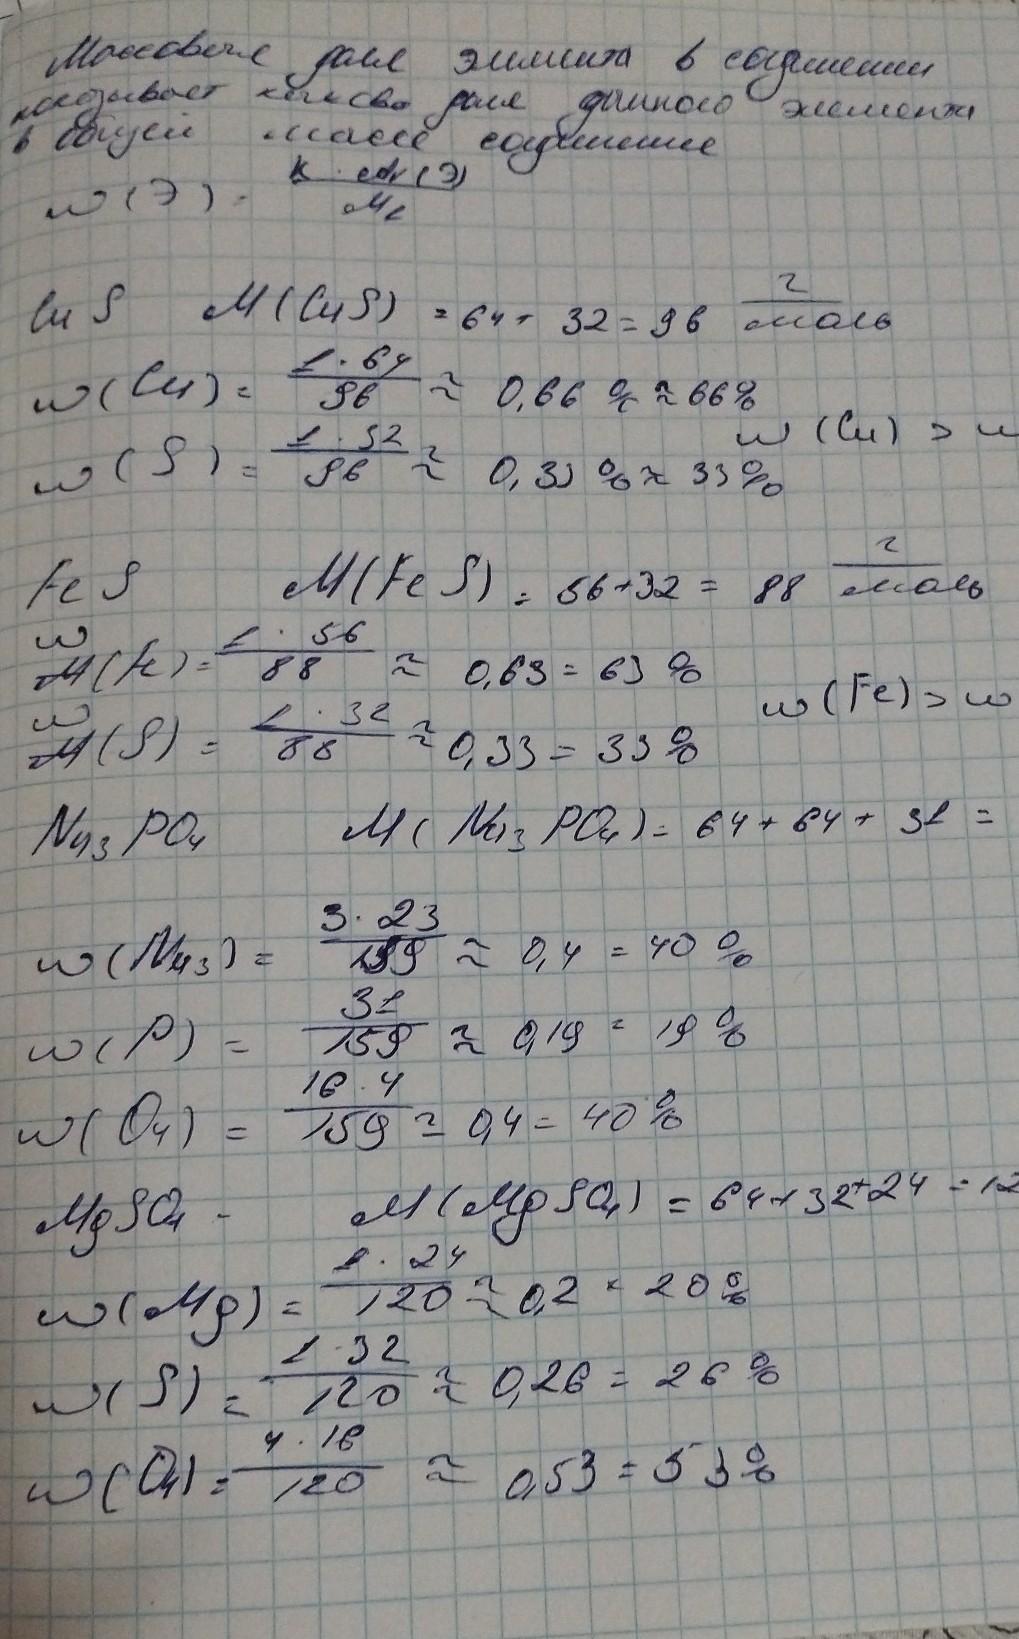 Массовая доля элемента в соединении
показывает какова доля данного элемента
в общей массе соединения
w(Э) = K · Ar(Э) / Mr
CuS M(CuS) = 64 + 32 = 96 г/моль
w(Cu) = 1 · 64 / 96 ≈ 0,66 % ≈ 66%
w(Cu) > w
w(S) = 1 · 32 / 96 ≈ 0,33 % ≈ 33%
FeS M(FeS) = 56 + 32 = 88 г/моль
w
M(Fe) = 1 · 56 / 88 ≈ 0,63 = 63 %
w(Fe) > w
w
M(S) = 1 · 32 / 88 ≈ 0,33 = 33%
Na₃PO₄ M(Na₃PO₄) = 64 + 64 + 31 =
w(Na₃) = 3 · 23 / 159 ≈ 0,4 = 40 %
w(P) = 31 / 159 ≈ 0,19 = 19 %
w(O₄) = 16 · 4 / 159 ≈ 0,4 = 40%
MgSO₄ - M(MgSO₄) = 64 + 32 + 24 = 12
w(Mg) = 1 · 24 / 120 ≈ 0,2 = 20%
w(S) = 1 · 32 / 120 ≈ 0,26 = 26 %
w(O₄) = 4 · 16 / 120 ≈ 0,53 = 53%